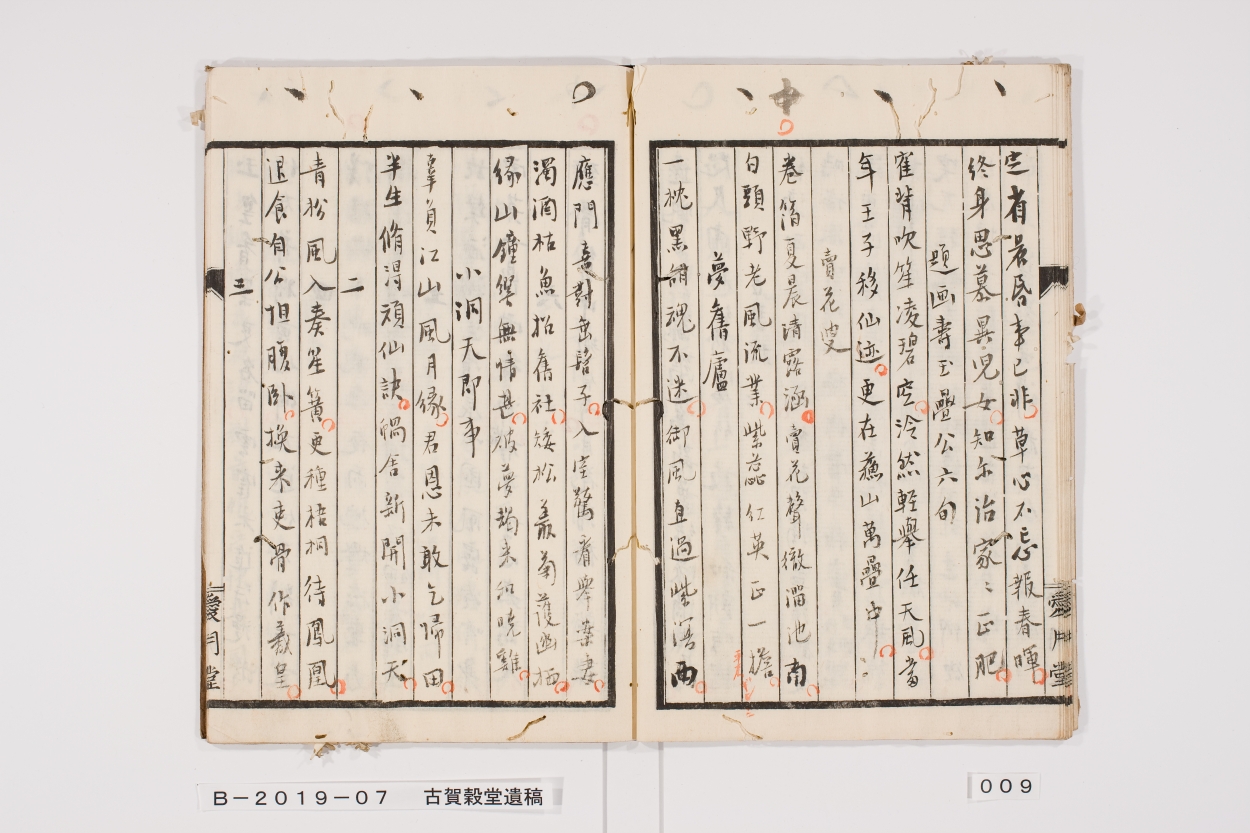 定省晨昏事已非草心不忘報春暉
終身思慕異児女知尓治家〻正肥
題画壽玉疊公六句
隺背吹笙凌碧空冷然軽舉任天風當
年王子移仙迹更在蘓山萬疊中
賣花叟
巻箔夏晨清露涵賣花聲徹澑池南
白頭野老風流業紫蕊仁英正一擔
夢舊廬
一枕黒甜魂不迷御風直過紫溟西
應門喜對垂髫子入室驚看舉案妻
濁酒枯魚招舊社矮松叢菊護幽栖
縁山鐘磬無情甚破夢趨来和曉雞
小洞天即事
辜負江山風月縁君恩未敢乞帰田
半生脩得頑仙訣蝸舎新開小洞天
二
青松風入奏笙簧更種梧桐待鳳凰
退食自公坦腹卧換来吏骨作羲皇
三
愛月堂
愛月堂
B－2019－07　古賀穀堂遺稿
009